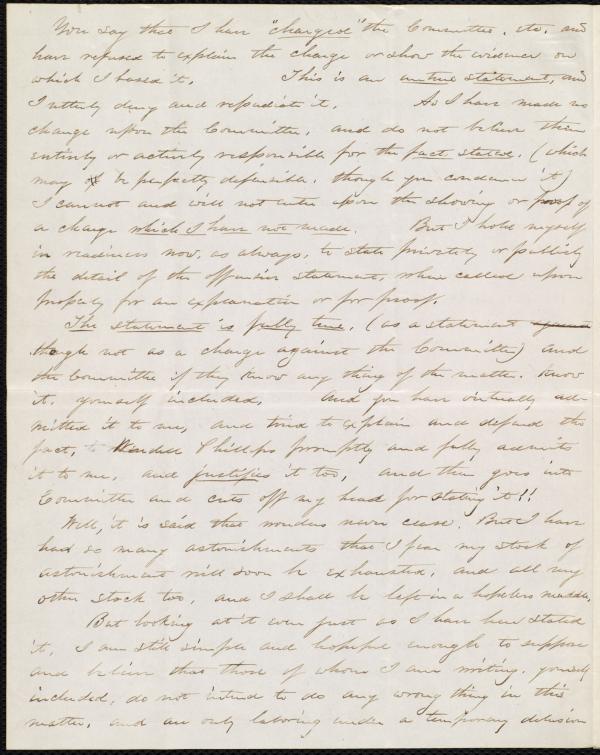 You say that I have "charged" the Committee, etc, and
have refused to explain the charge or show the evidence on
which I based it. This is an untrue statement, and
I utterly deny and repudiate it. As I have made no
charge upon the Committee, and do not believe them
entirely or actively responsible for the fact stated, (which
may be perfectly defensible, though you condemn it)
I cannot and will not enter upon the showing or proof of
a charge which I have not made. But I hold myself
in readiness now, as always, to state privately or publicly
the detail of the offensive statement, when called upon
properly for an explanation or for proof.
The statement is fully true, (as a statement against
though not as a charge against the Committee) and
the Committee if they know any thing of the matter, know
it, yourself included. And you have virtually ad-
mitted it to me, and tried to explain and defend the
fact, Wendell Phillips promptly and fully admits
it to me, and justifies it too, and then goes into
Committee and cuts off my head for stating it!!
Well, it is said that wonders never cease. But I have
had so many astonishments that I fear my stock of
astonishment will soon be exhausted, and all my
other stock too, and I shall be left in a hopeless muddle.
But looking at it even just as I have here stated
it, I am still simple and hopeful enough to suppose
and believe that those of whom I am writing, yourself
included, do not intend to do any wrong thing in this
matter, and are only laboring under a temporary delusion